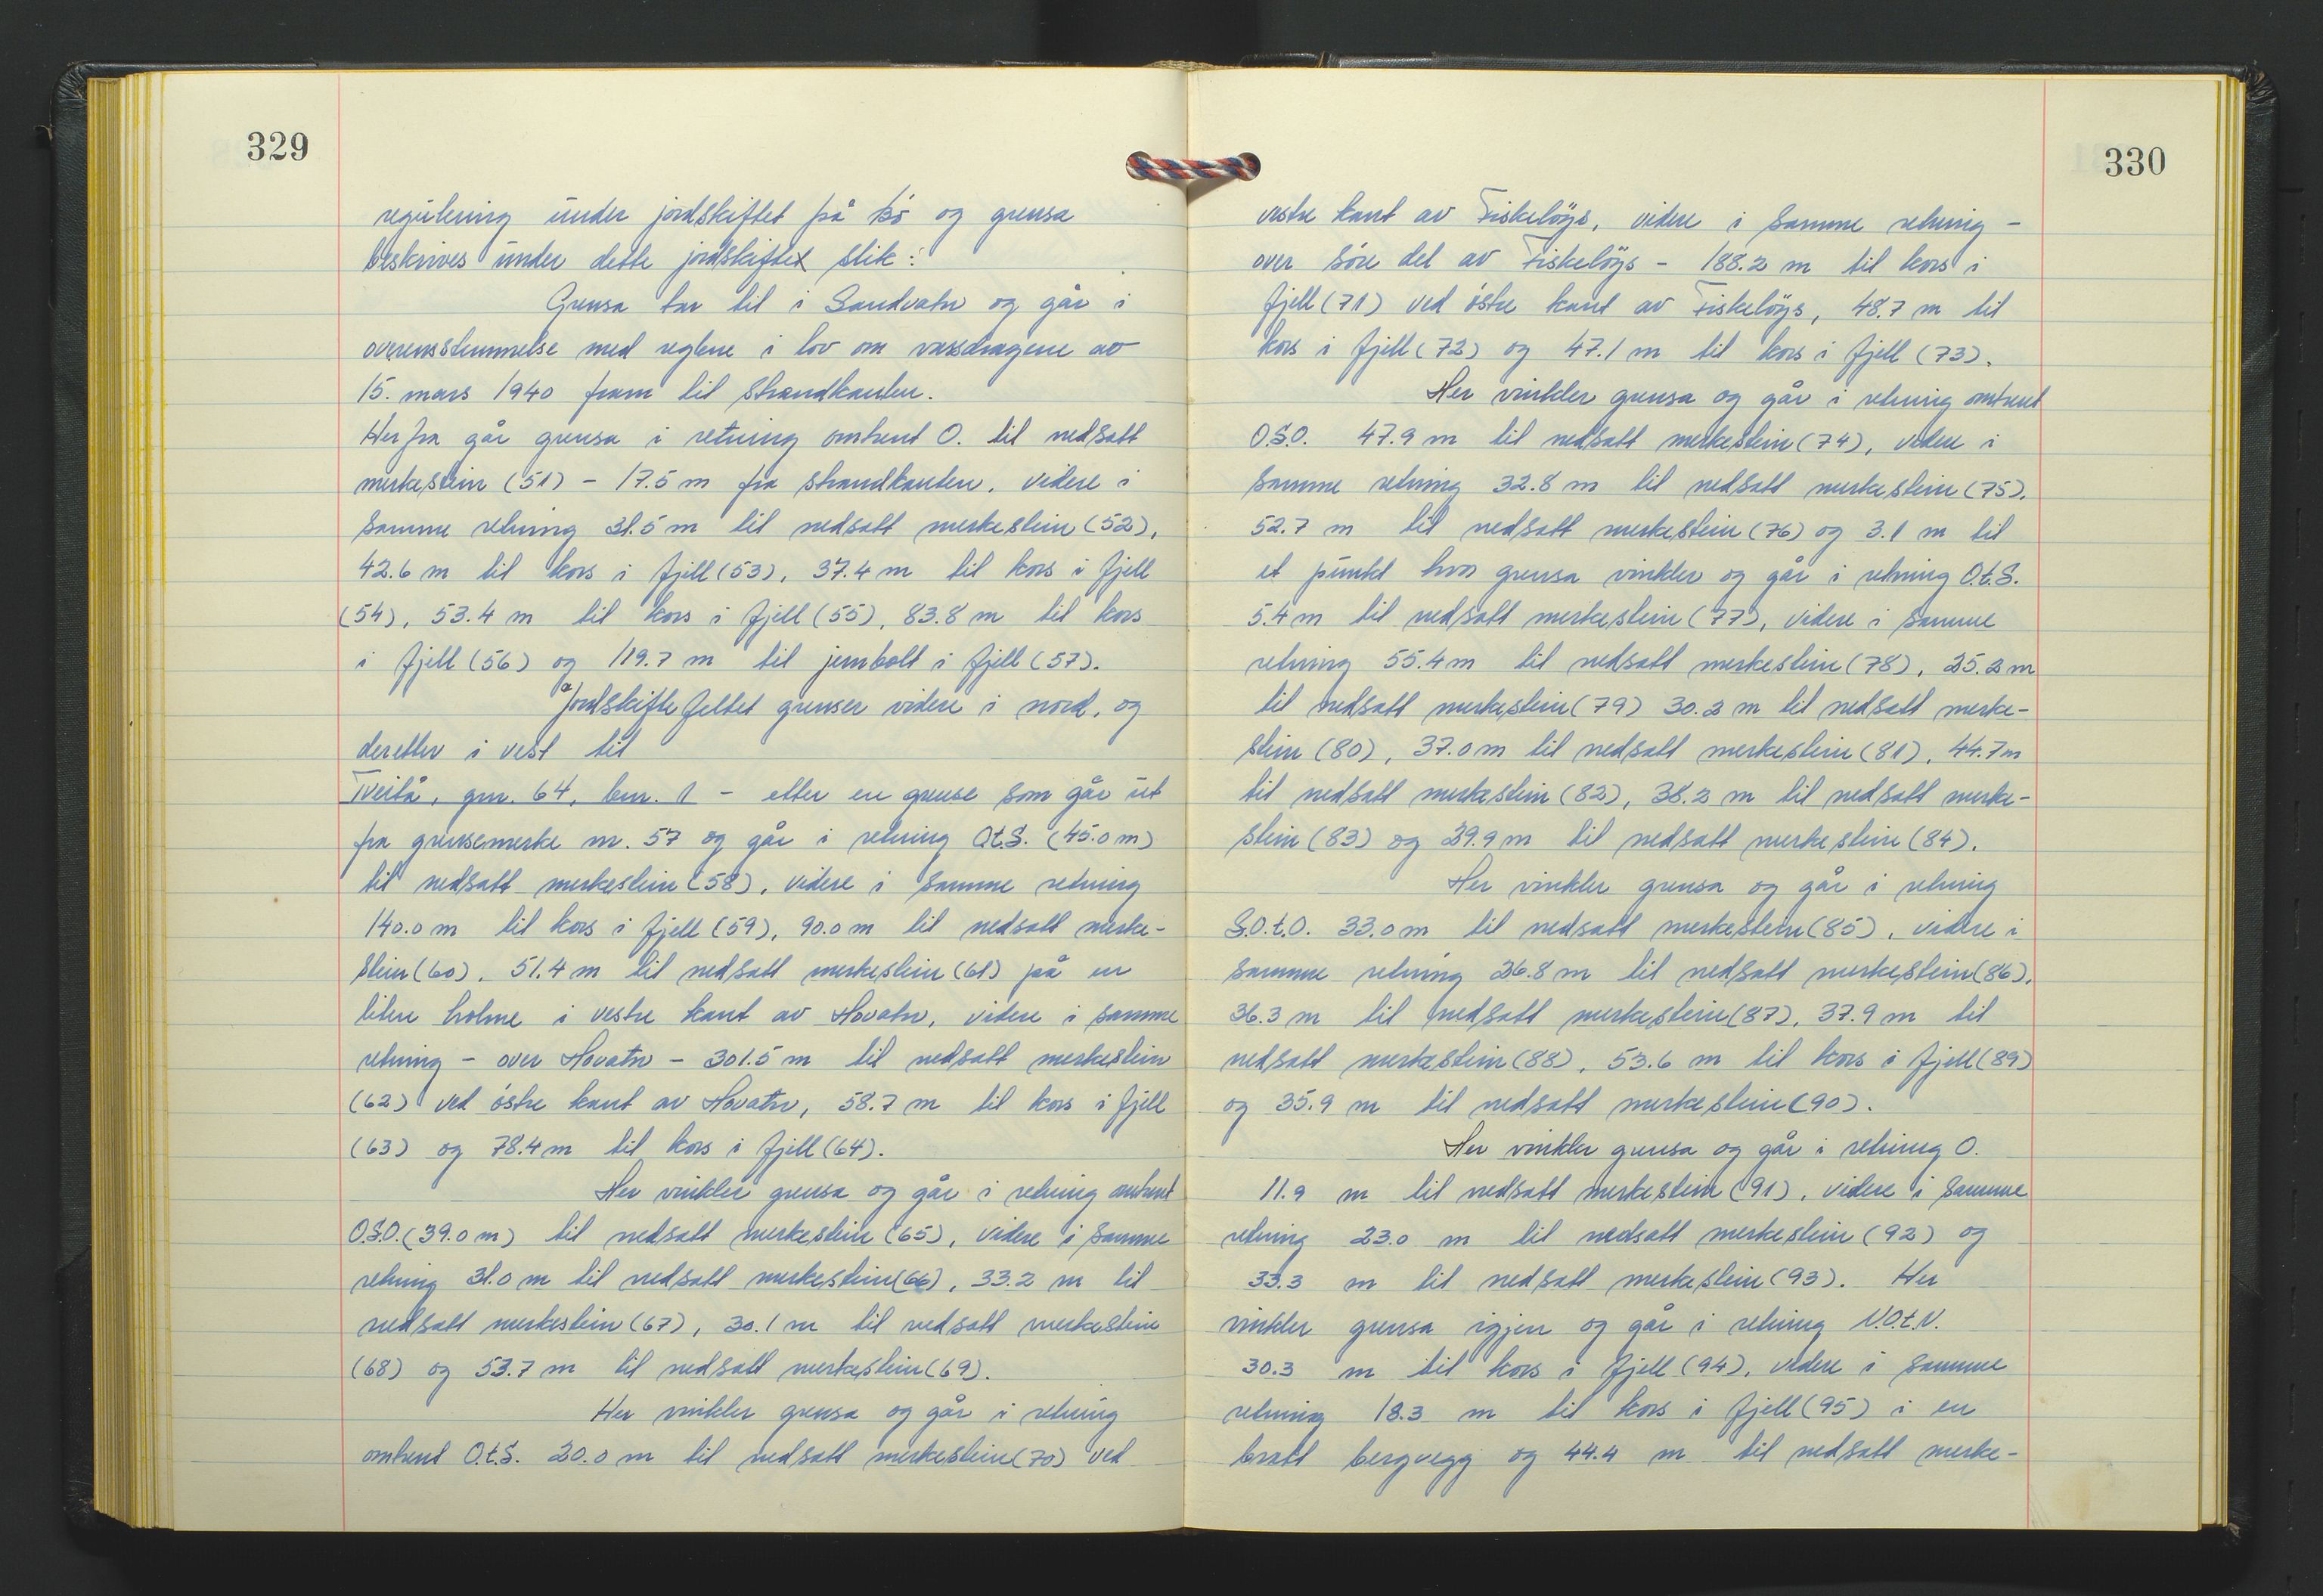 329
regulering under jordskiftet på Bö og grensa
beskrives under dette jordskiftet slik:
Grensa tar til i Sandvatn og går i
overensstemmelse med reglene i lov om vassdragene av
15. mars 1940 fram til strandkanten.
Her fra går grensa i retning omtrent O. til nedsatt
merkestein (51) - 17.5 m fra strandkanten, videre i
samme retning 31.5 m til nedsatt merkestein (52),
42.6 m til kors i fjell (53), 37.4 m til kors i fjell
(54), 53.4 m til kors i fjell (55), 83.8 m til kors
i fjell (56) og 119.7 m til jernbolt i fjell (57).
Jordskiftefeltet grenser videre i nord, og
deretter i vest til
Tveitå, gnr. 64, bnr. 1 - etter en grense som går ut
fra grensemerke nr. 57 og går i retning O.t.S. (45.0 m)
til nedsatt merkestein (58), videre i samme retning
140.0 m til kors i fjell (59), 90.0 m til nedsatt merke-
stein (60), 51.4 m til nedsatt merkestein (61) på en
liten holme i vestre kant av Hovatn, videre i samme
retning - over Hovatn - 301.5 m til nedsatt merkestein
(62) ved östre kant av Hovatn, 58.7 m til kors i fjell
(63) og 78.4 m til kors i fjell (64).
Her vinkler grensa og går i retning omtrent
O.S.O. (39.0 m) til nedsatt merkestein (65), videre i samme
retning 31.0 m til nedsatt merkestein (66), 33.2 m til
nedsatt merkestein (67), 30.1 m til nedsatt merkestein
(68) og 53.7 m til nedsatt merkestein (69).
Her vinkler grensa og går i retning
omtrent O.t.S. 20.0 m til nedsatt merkestein (70) ved
330
vestre kant av Fiskelöys, videre i samme retning -
over söre del av Fiskelöys - 188.2 m til kors i
fjell (71) ved östre kant av Fiskelöys, 48.7 m til
kors i fjell (72) og 47.1 m til kors i fjell (73).
Her vinkler grensa og går i retning omtrent
O.S.O. 47.9 m til nedsatt merkestein (74), videre i
samme retning 32.8 m til nedsatt merkestein (75),
52.7 m til nedsatt merkestein (76) og 3.1 m til
et punkt hvor grensa vinkler og går i retning O.t.S.
5.4 m til nedsatt merkestein (77), videre i samme
retning 55.4 m til nedsatt merkestein (78), 25.2 m
til nedsatt merkestein (79) 30.2 m til nedsatt merke-
stein (80), 37.0 m til nedsatt merkestein (81), 44.7 m
til nedsatt merkestein (82), 38.2 m til nedsatt merke-
stein (83) og 29.9 m til nedsatt merkestein (84).
Her vinkler grensa og går i retning
S.O.t.O. 33.0 m til nedsatt merkestein (85), videre i
samme retning 26.8 m til nedsatt merkestein (86),
36.3 m til nedsatt merkestein (87), 37.9 m til
nedsatt merkestein (88), 53.6 m til kors i fjell (89)
og 35.9 m til nedsatt merkestein (90).
Her vinkler grensa og går i retning O.
11.9 m til nedsatt merkestein (91), videre i samme
retning 23.0 m til nedsatt merkestein (92) og
33.3 m til nedsatt merkestein (93). Her
vinkler grensa igjen og går i retning N.O.t.N.
30.3 m til kors i fjell (94), videre i samme
retning 18.3 m til kors i fjell (95) i en
bratt bergvegg og 44.4 m til nedsatt merke-